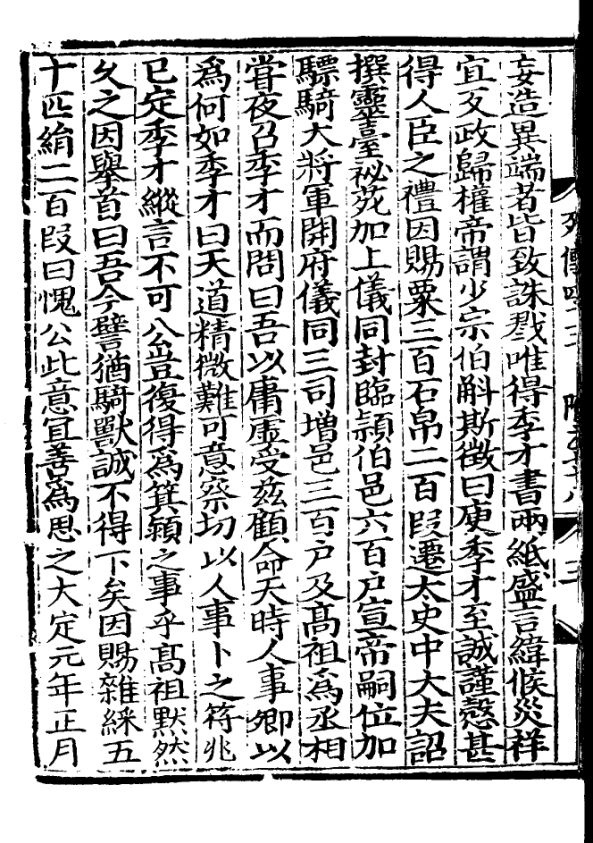 妄造異端者皆致誅戮唯得季才書兩紙盛言緯候災祥
宜反政歸權帝謂少宗伯斛斯徵曰庾季才至誠謹慤甚
得人臣之禮因賜粟三百石帛二百段遷太史中大夫詔
撰靈臺祕苑加上儀同封臨潁伯邑六百戶宣帝嗣位加
驃騎大將軍開府儀同三司增邑三百戶及髙祖為丞相
甞夜召季才而問曰吾以庸虛受兹顧命天時人事卿以
為何如季才曰天道精微難可意察切以人事卜之符兆
已定季才縱言不可公豈復得為箕潁之事乎髙祖默然
乆之因舉首曰吾今譬猶騎獸誠不得下矣因賜雜綵五
十匹絹二百段曰愧公此意宜善為思之大定元年正月
列傳四十三 隋書七十八 三